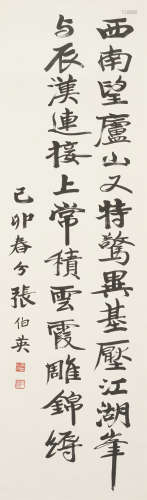 西南望廬山又特驚異基壓江湖峯
与辰漢連接上常積雲霞雕錦縟
己卯春分張伯英